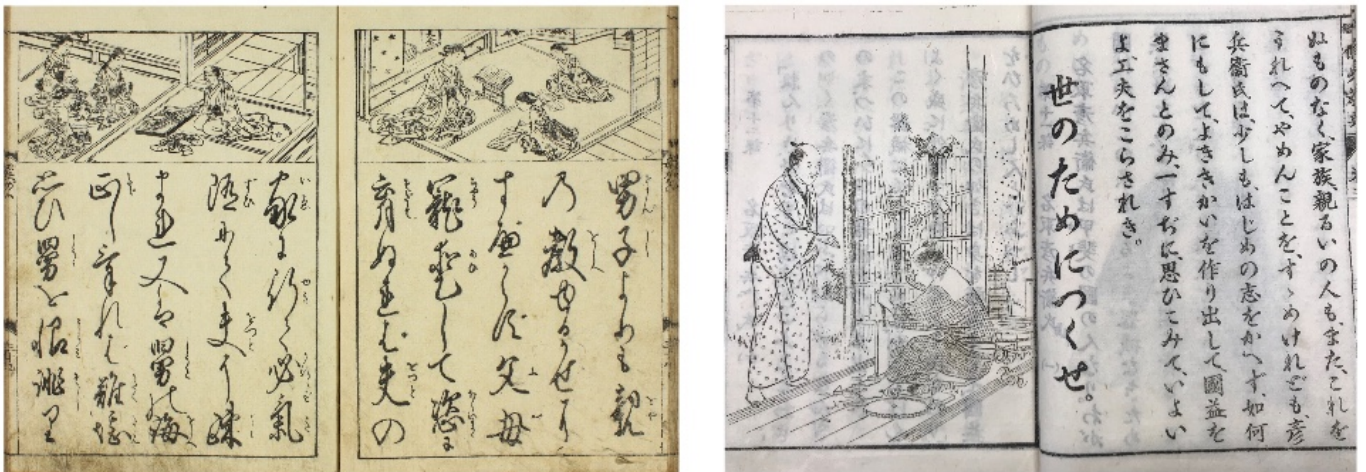 男子よりも親
乃教ゆるかせに
すべからず父母
寵愛して恣に
育ぬれば夫の
家に行て必氣
随にて夫に疎
まれ又は舅の誨
正しければ難堪
思ひ舅を恨誹り
ぬものなく、家族親るいの人もまた、これを
うれへて、やめんことを、すゝめけれども、彦
兵衞氏は、少しも、はじめの志をかへず、如何
にもして、よききかいを作り出して、國益を
まさんとのみ、一すぢに、思ひこみて、いよい
よ、工夫をこらされき。
世のためにつくせ。